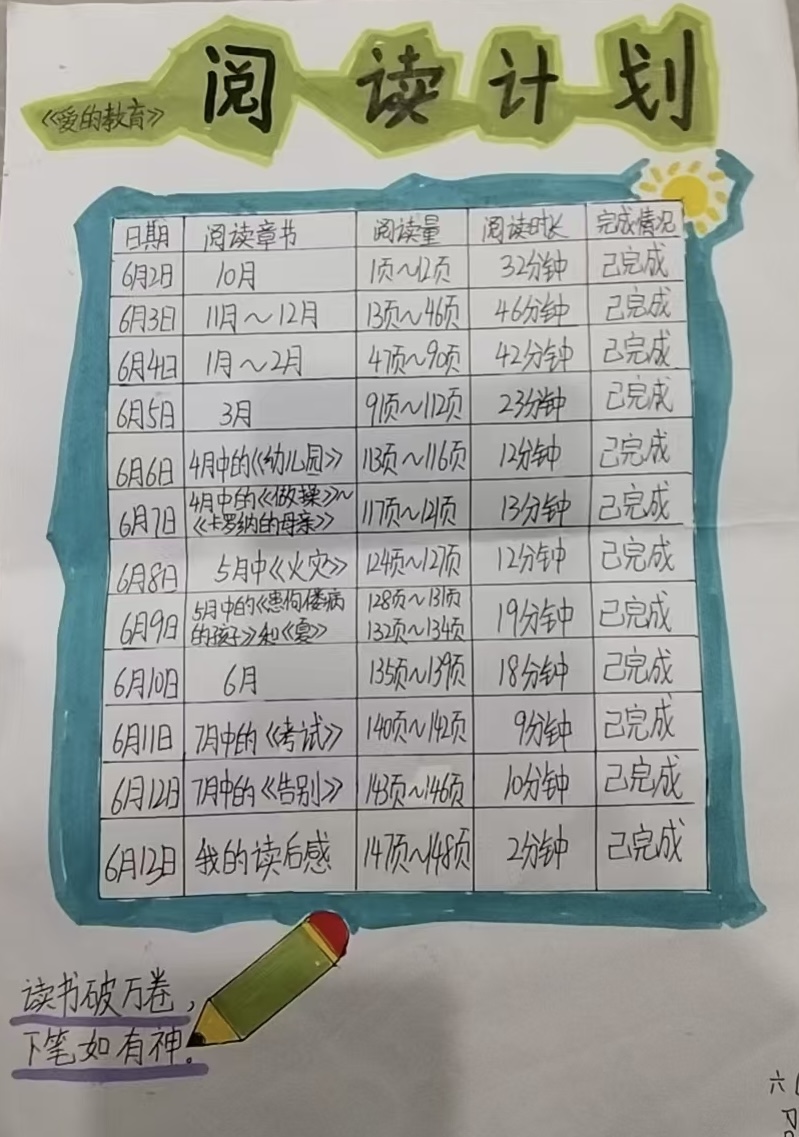 阅读计划
《爱的教育》
日期 阅读章节 阅读量 阅读时长 完成情况
6月2日 10月 1页~12页 32分钟 已完成
6月3日 11月~12月 13页~46页 46分钟 已完成
6月4日 1月~2月 47页~90页 42分钟 已完成
6月5日 3月 91页~112页 23分钟 已完成
6月6日 4月中的《幼儿园》 113页~116页 12分钟 已完成
6月7日 4月中的《做操》~ 117页~121页 13分钟 已完成
《卡罗纳的母亲》
6月8日 5月中《火灾》 124页~127页 12分钟 已完成
6月9日 5月中的《患佝偻病 128页~131页 19分钟 已完成
的孩子》和《夏》 132页~134页
6月10日 6月 135页~139页 18分钟 已完成
6月11日 7月中的《考试》 140页~142页 9分钟 已完成
6月12日 7月中的《告别》 143页~146页 10分钟 已完成
6月12日 我的读后感 147页~148页 2分钟 已完成
读书破万卷，
下笔如有神。
六